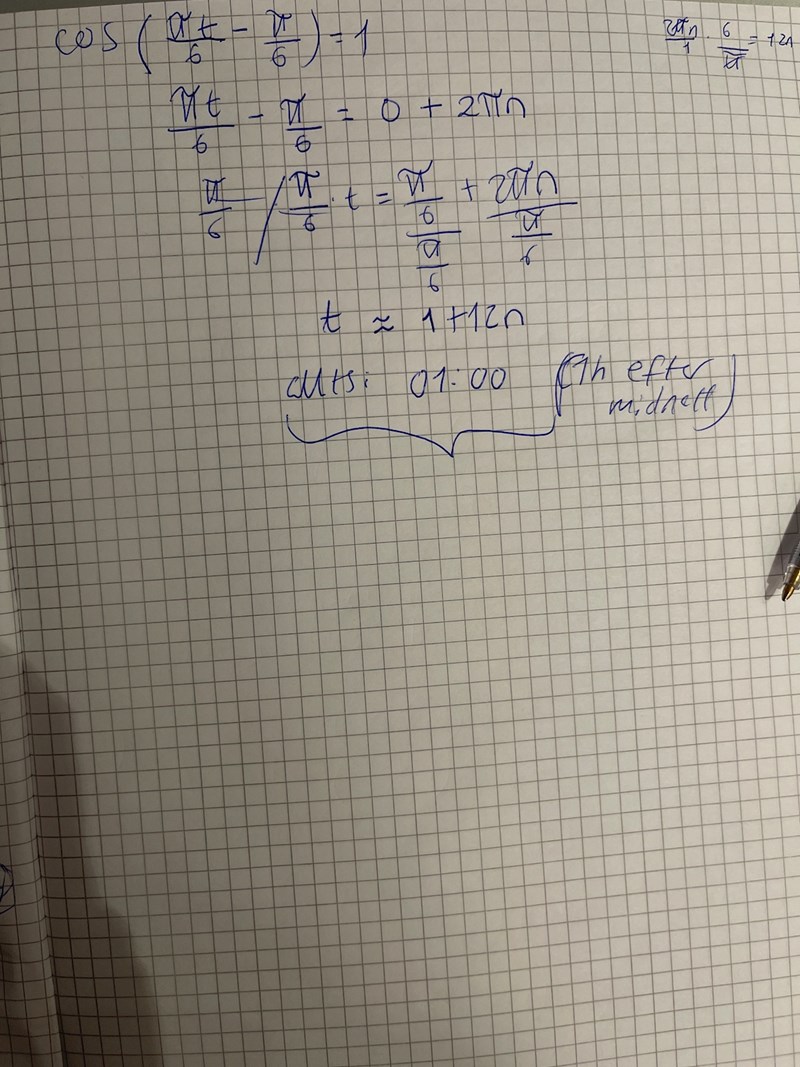 cos(πt/6 - π/6) = 1
2πn/1 · 6/π = 12n
πt/6 - π/6 = 0 + 2πn
π/6 / π/6 · t = π/6/π/6 + 2πn/π/6
t ≈ 1+12n
dvs: 01:00 (1h efter
midnatt)